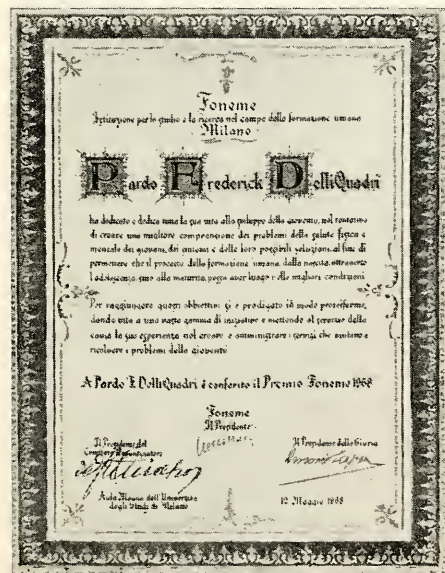 Foneme
Istituzione per lo studio e la ricerca nel campo della formazione umana
Milano
Pardo Frederick DelliQuadri
ha dedicato e dedica tutta la sua vita allo sviluppo della gioventù, nel tentativo
di creare una migliore comprensione dei problemi della salute fisica e
mentale dei giovani, dei e delle loro possibili soluzioni, al fine di
permettere che il processo della formazione umana, dalla nascita, attraverso
l'adolescenza, sino alla maturità, possa aver luogo nelle migliori condizioni
Per raggiungere questi obbiettivi si è prodigato in modo proteiforme,
dando vita a una vasta gamma di iniziative e mettendo al servizio della
causa la sua esperienza nel creare e amministrare i servizi che aiutano a
risolvere i problemi della gioventù
A Pardo F. DelliQuadri è conferito il Premio Foneme 1968
Foneme
Il Presidente
Il Presidente del
Il Presidente della Giuria
Aula Magna dell'Università
degli Studi di Milano
12 Maggio 1968